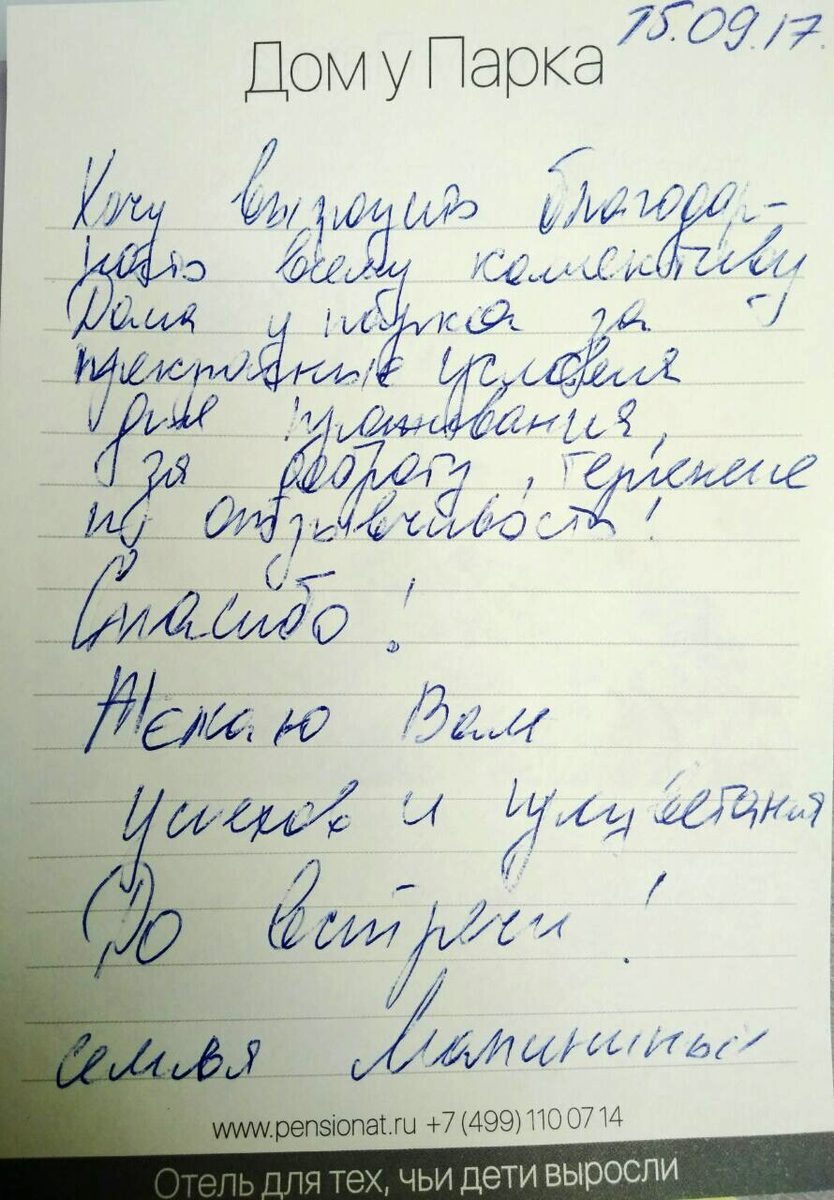 15.09.17.
Дом у Парка
Хочу выразить благодар-
ность всему коллективу
Дома у парка за
прекрасные условия
для проживания,
за доброту, терпение
и отзывчивость!
Спасибо!
Желаю Вам
успехов и процветания
До встречи!
семья
www.pensionat.ru +7 (499) 110 07 14
Отель для тех, чьи дети выросли